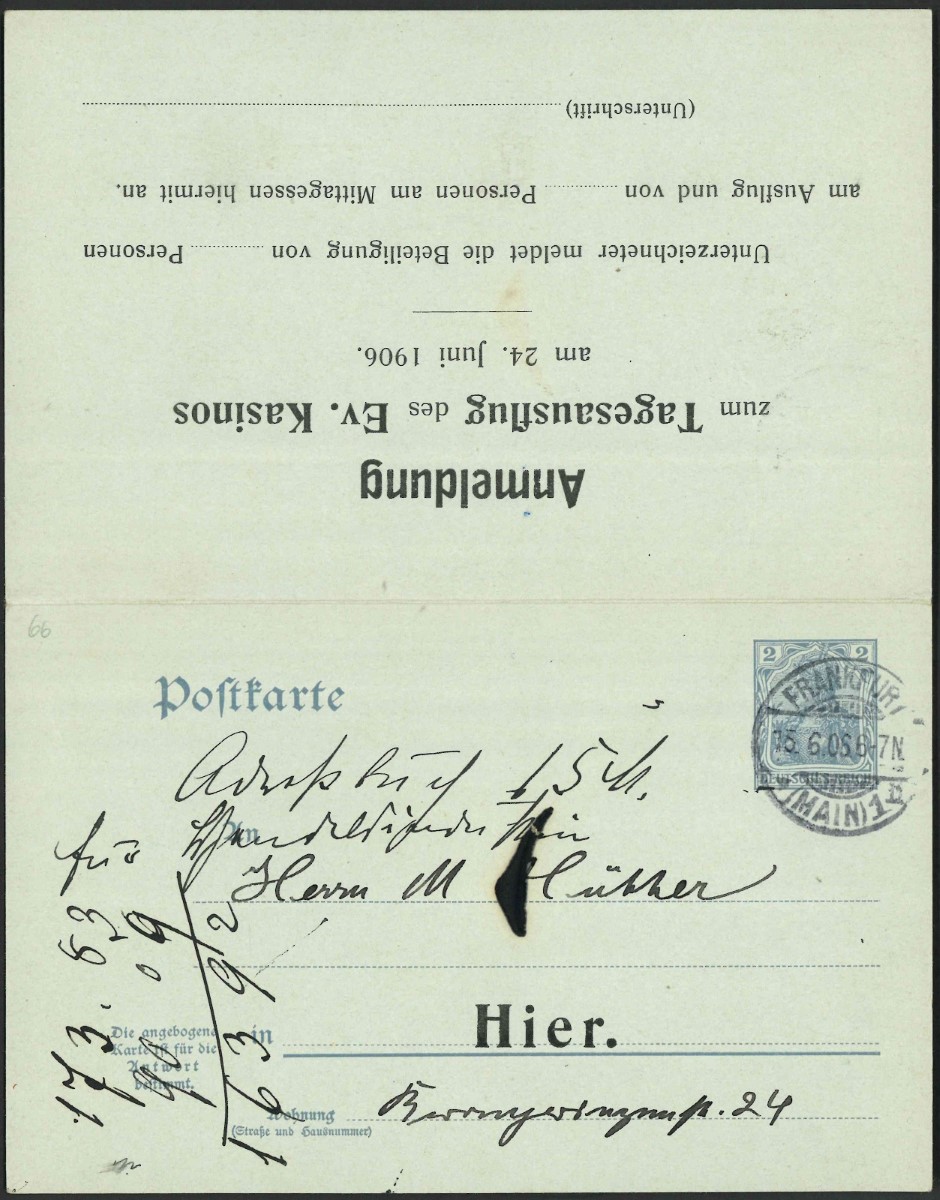 (Unterschrift)
am Ausflug und von Personen am Mittagessen hiermit an.
Unterzeichneter meldet die Beteiligung von Personen
am 24. Juni 1906.
zum Tagesausflug des Ev. Kasinos
Anmeldung
66
Postkarte
2 2
FRANKFURT
15.6.06.6-7N
DEUTSCHES REICH
(MAIN)1
Adreßbuch 15 M.
An
für
Herrn M
Hier.
in
Die angebogene
Karte ist für die
Antwort
bestimmt.
Wohnung
(Straße und Hausnummer)
24
173.63
09
163 92